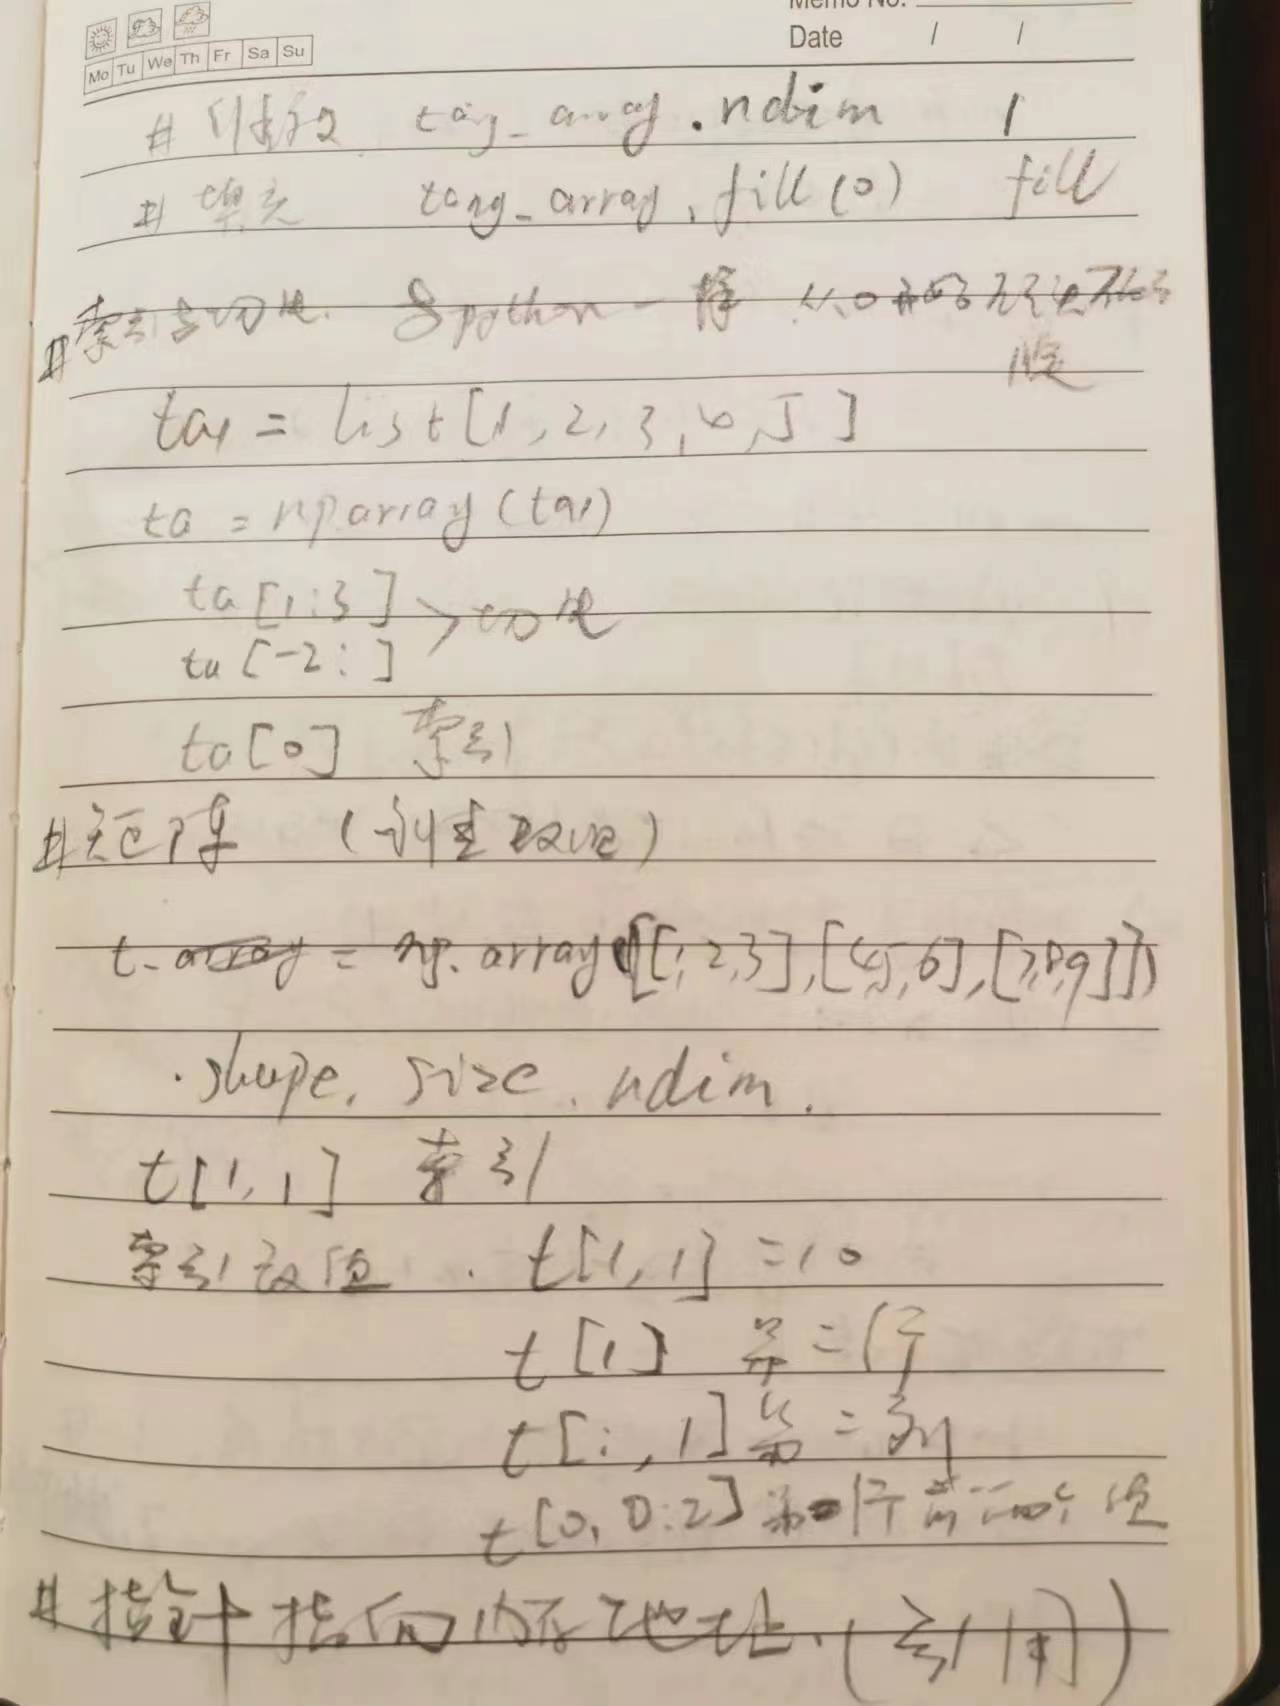 Memo No.
Mo Tu We Th Fr Sa Su
Date / /
# tang_array.ndim 1
# 填充 tang_array.fill(0) fill
#索引与切片. 与python一样 从0开始
ta1 = list[1,2,3,4,5]
ta = nparray(ta1)
ta[1:3]
ta[-2:] > 切片
ta[0] 索引
#矩阵 (创建 )
t_array = np.array([[1,2,3],[4,5,6],[7,8,9]])
.shape. size. ndim.
t[1,1] 索引
索引改值. t[1,1] =10
t[1] 第二行
t[:,1] 第二列
t[0,0:2] 第一行前二个值
#指针指向内存地址.(引用)